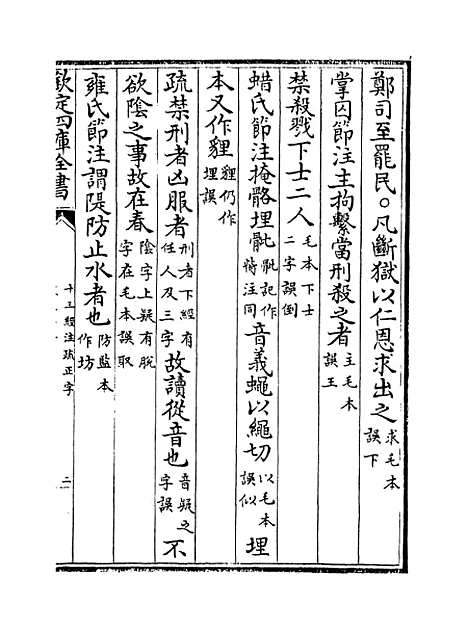 鄭司至罷民。凡斷獄以仁恩求出之求毛本誤下
掌囚節注主拘繫當刑殺之者主毛本誤王
禁殺戮下士二人毛本下士二字誤倒
蜡氏節注掩骼埋骴骴記作胔注同音義蠅以繩切以毛本誤似埋
本又作貍貍仍作埋誤
疏禁刑者凶服者刑者下經有任人及三字故讀從音也音疑之字誤不
欲陰之事故在春陰字上疑有脫字在毛本誤取
雍氏節注謂隄防止水者也防監本作坊
欽定四庫全書
十三經注疏正字
二